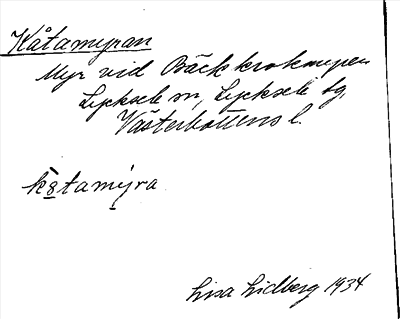 Kåtamyran
Myr vid Bäckkrokmyren
Lycksele sn, Lycksele tg.
Västerbottens l.
kåtamýra
Lisa Lidberg 1934